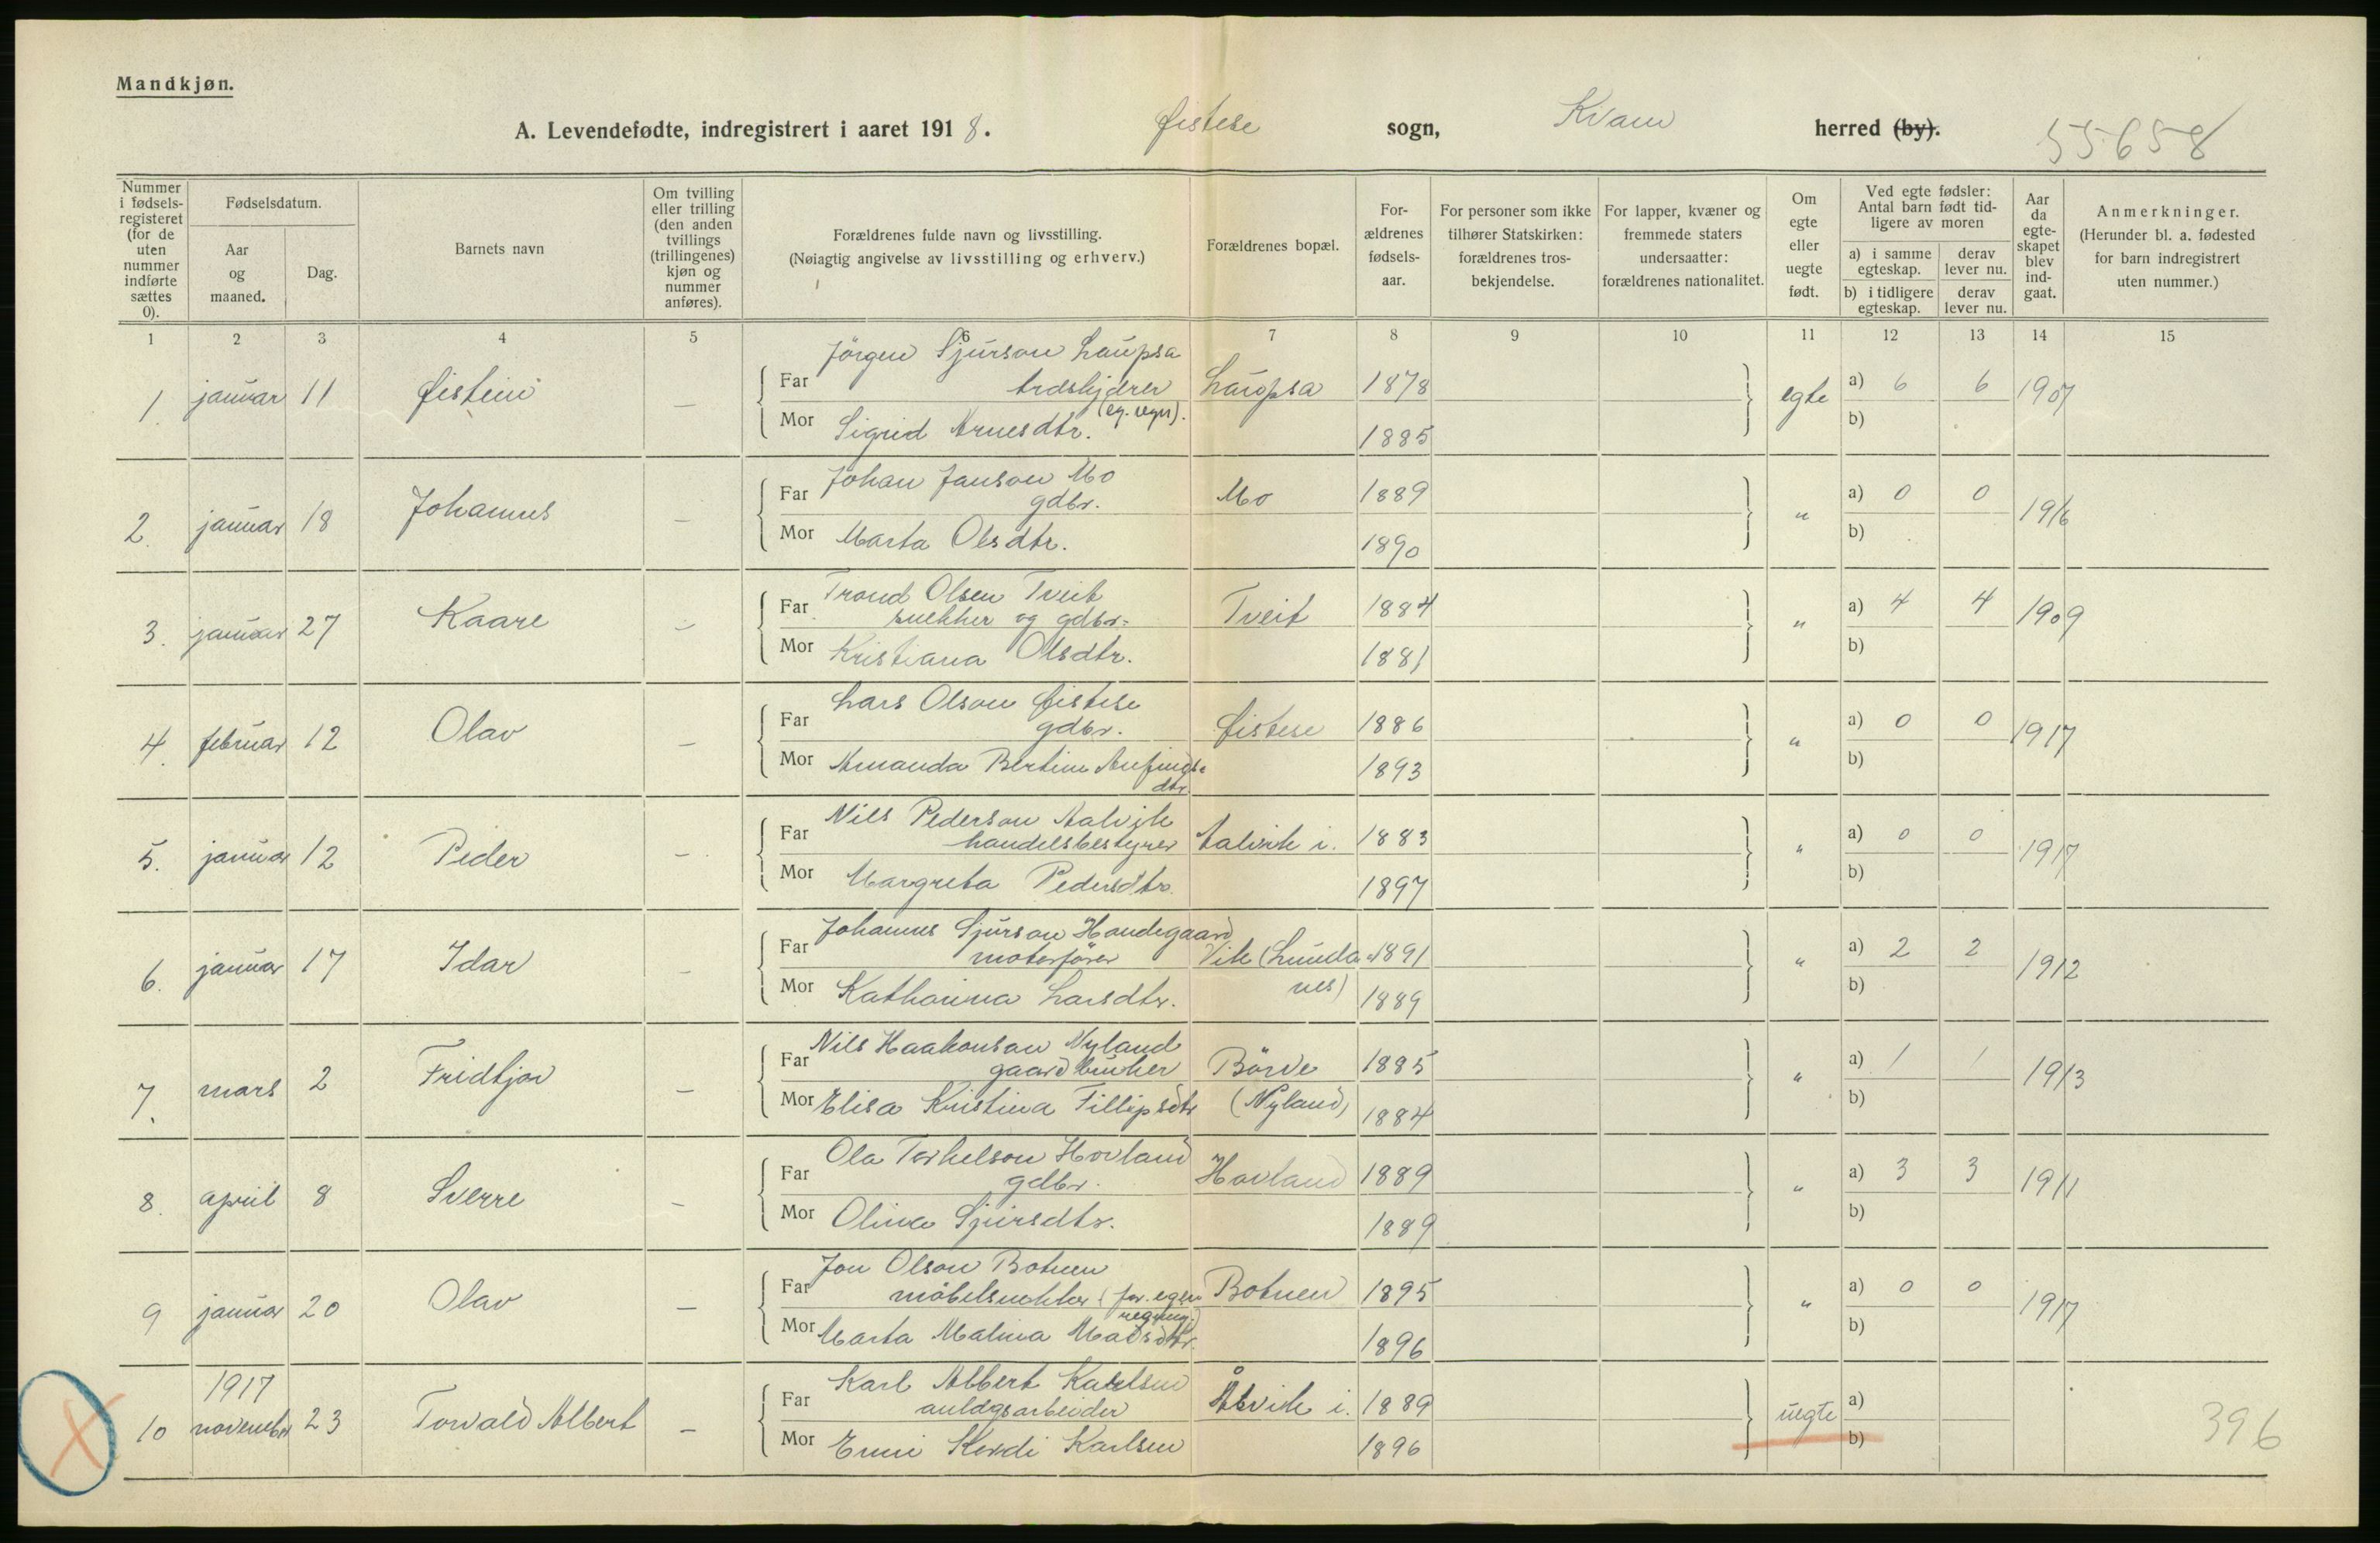 Mandkjøn.
A. Levendefødte, indregistrert i aaret 1918. Øistese sogn, Kvam herred (by). 55658
Nummer i fødsels-registeret (for de uten nummer indførte sættes 0).
Fødselsdatum.
Aar og maaned.
Dag.
Barnets navn
Om tvilling eller trilling (den anden tvillings (trillingenes) kjøn og nummer anføres).
Forældrenes fulde navn og livsstilling.
(Nøiagtig angivelse av livsstilling og erhverv.)
Forældrenes bopæl.
For-ældrenes fødsels-aar.
For personer som ikke tilhører Statskirken: forældrenes tros-bekjendelse.
For lapper, kvæner og fremmede staters undersaatter: forældrenes nationalitet.
Om egte eller uegte født.
Ved egte fødsler: Antal barn født tid-ligere av moren
a) i samme egteskap. derav lever nu.
b) i tidligere egteskap. derav lever nu.
Aar da egte-skapet blev ind-gaat.
Anmerkninger.
(Herunder bl. a. fødested for barn indregistrert uten nummer.)
1 2 3 4 5 6 7 8 9 10 11 12 13 14 15
Jörgen Sjurson Laupsa
1. januar 11 Øistein — Far Laupsa 1878 egte a) 6 6 1907
(eg. regn).
Mor Sigrid Arnesdtr. 1885 b)
Johan Janson Mo
2. januar 18 Johannes — Far gdbr. Mo 1889 " a) 0 0 1916
Mor Marta Olsdtr. 1890 b)
Trond Olsen Tveit
3. januar 27 Kaare — Far snekker og gdbr. Tveit 1884 " a) 4 4 1909
Mor Kristiana Olsdtr. 1881 b)
Lars Olson Øistese
4. februar 12 Olav — Far gdbr. Øistese 1886 " a) 0 0 1917
Mor Amanda Bertine Anfinds-
dtr. 1893 b)
Nils Pederson Aalvik
5. januar 12 Peder — Far handelsbestyrer Aalvik i. 1883 " a) 0 0 1917
Mor Margreta Pedersdtr. 1897 b)
Johannes Sjurson Handegaard
6. januar 17 Idar — Far motorfører Vik (Lunda- 1891 " a) 2 2 1912
nes)
Mor Katharina Larsdtr. 1889 b)
Nils Haakonson Nyland
7. mars 2 Fridtjov — Far gaardbruker Börve 1885 " a) 1 1 1913
Mor Elisa Kristina Fillipsdtr (Nyland) 1884 b)
Ola Torkelson Hovland
8. april 8 Sverre — Far gdbr. Hovland 1889 " a) 3 3 1911
Mor Olina Sjursdtr. 1889 b)
Jon Olson Botnen
9 januar 20 Olav — Far möbelsnekker (for egen Botnen 1895 " a) 0 0 1917
regning)
Mor Marta Malina Madsdtr. 1896 b)
1917 Karl Albert Karlsen
10 november 23 Torvald Albert — Far anlægsarbeider Ålvik i. 1889 uegte a)
Mor Karlsen 1896 b) 396